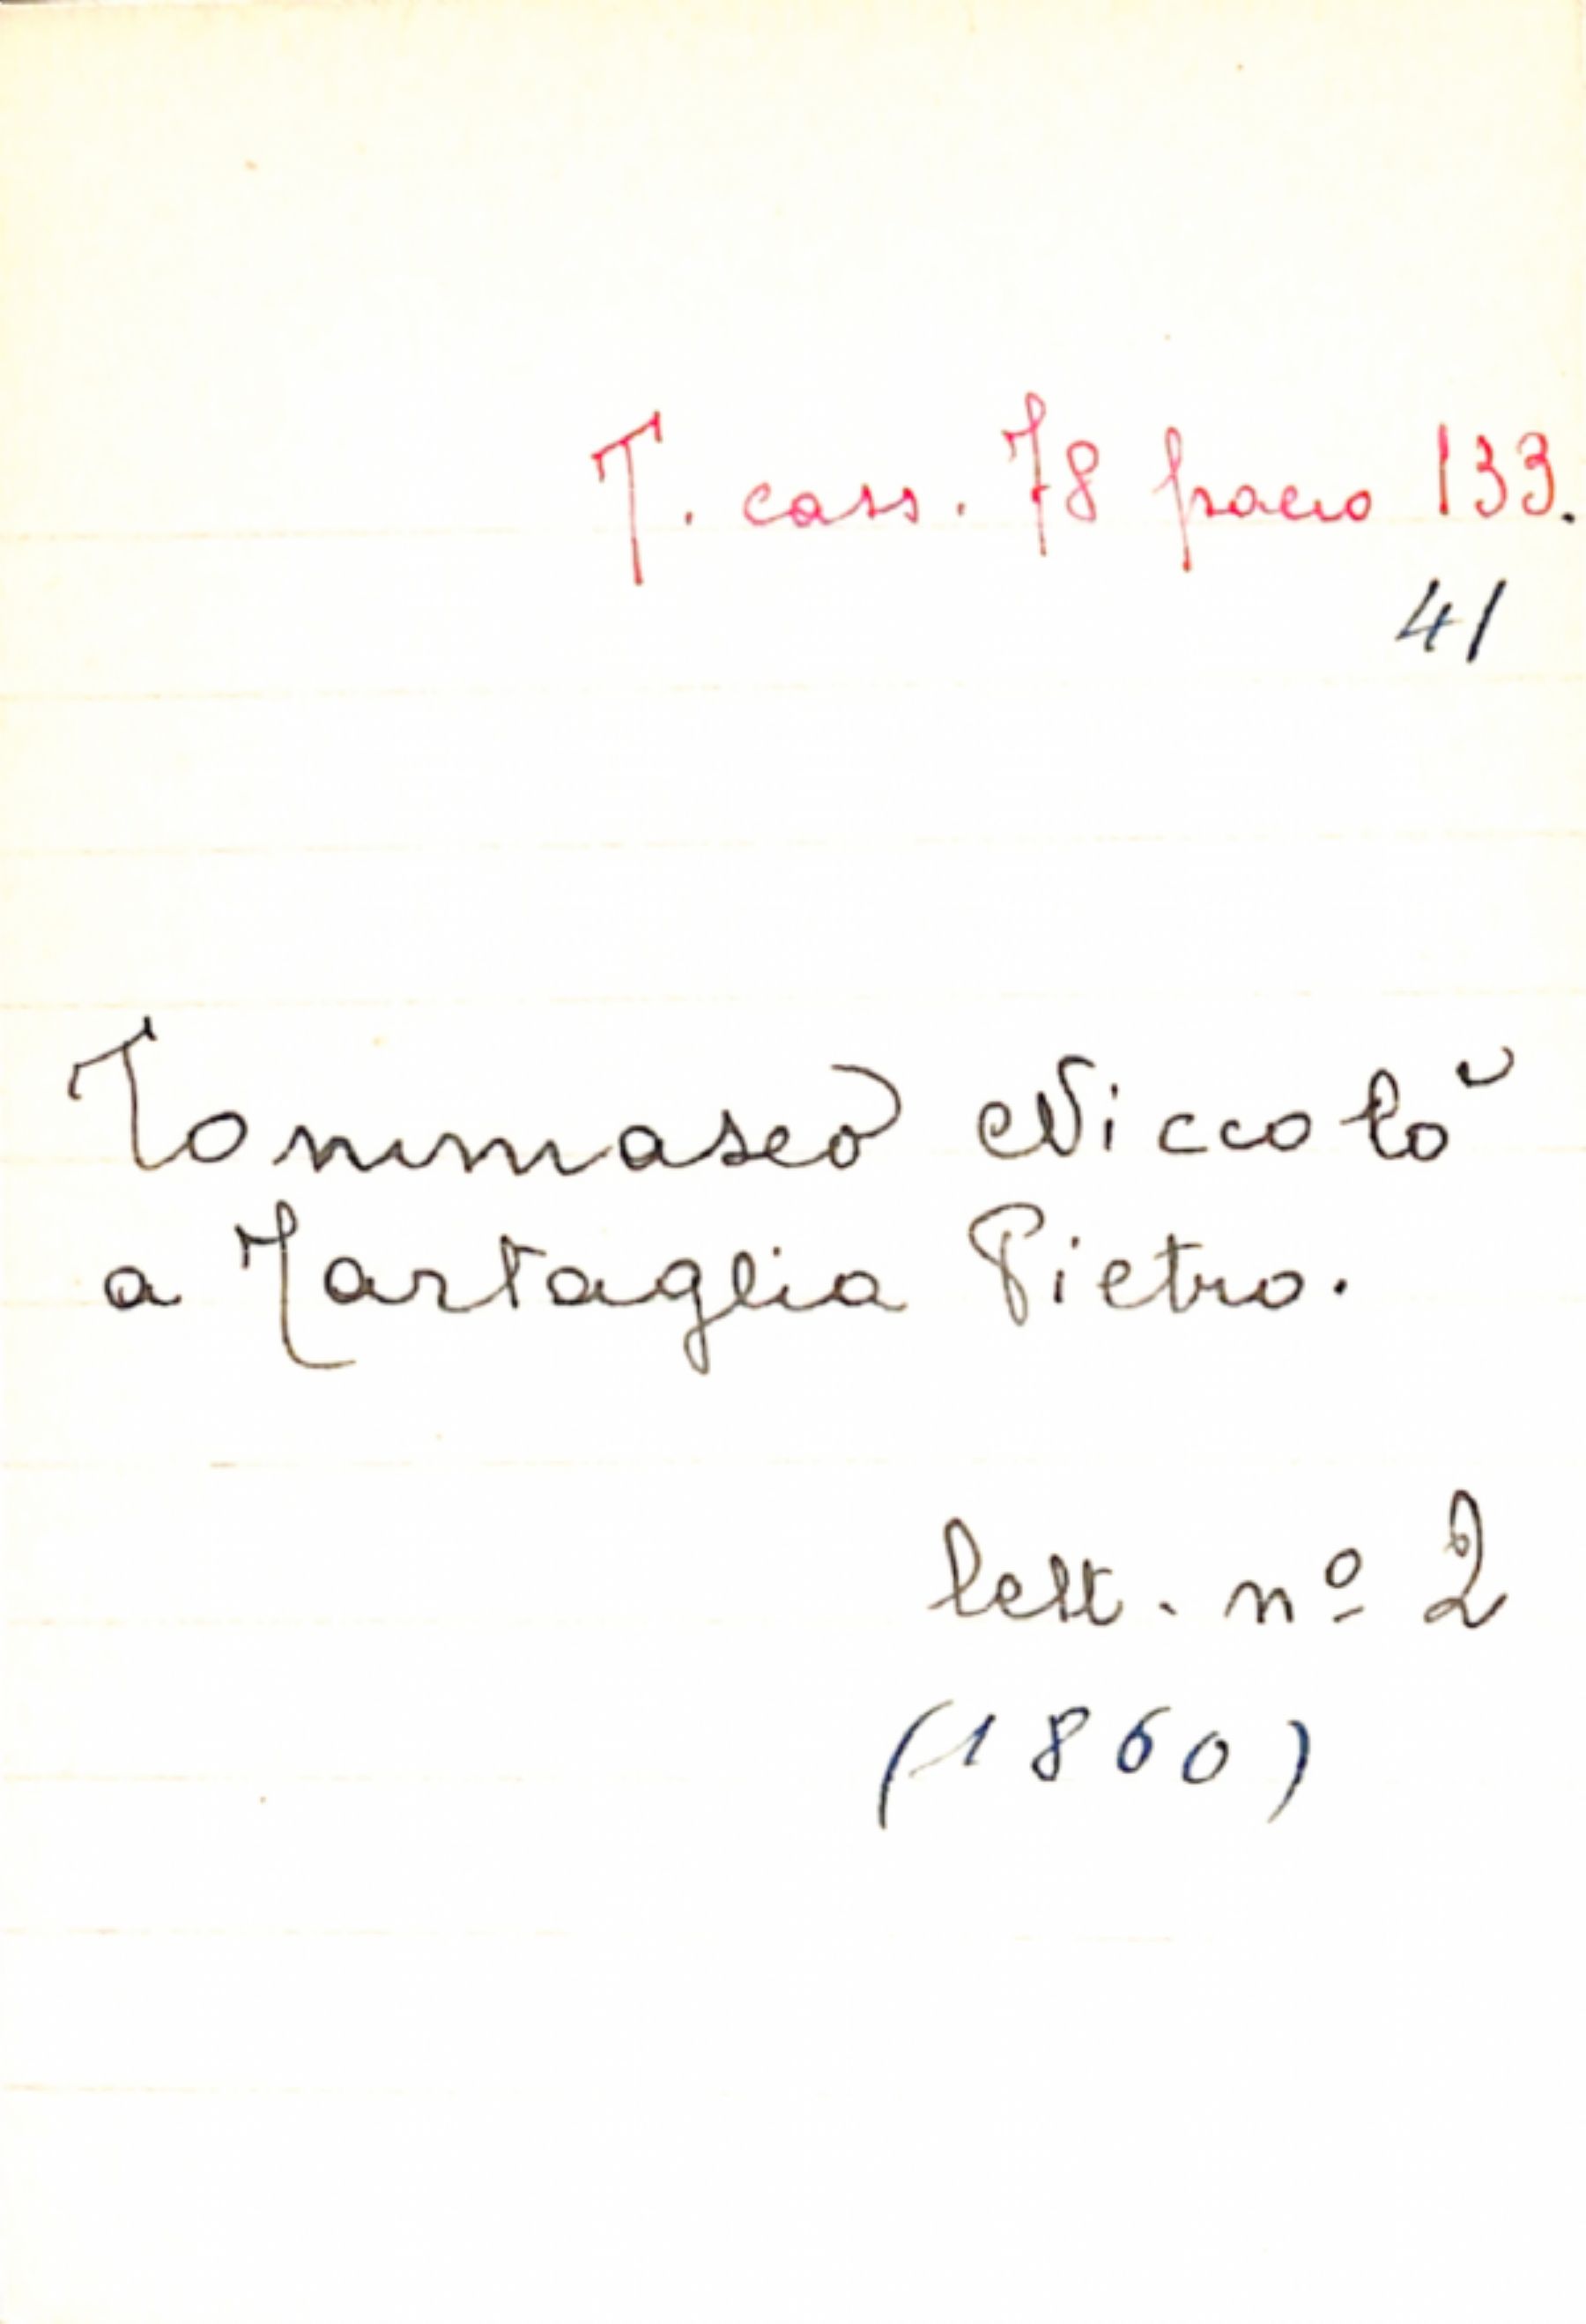 T. cass. 78 pacco 133.
41
Tommaseo Niccolò
a Tartaglia Pietro.
lett. nº 2
(1860)